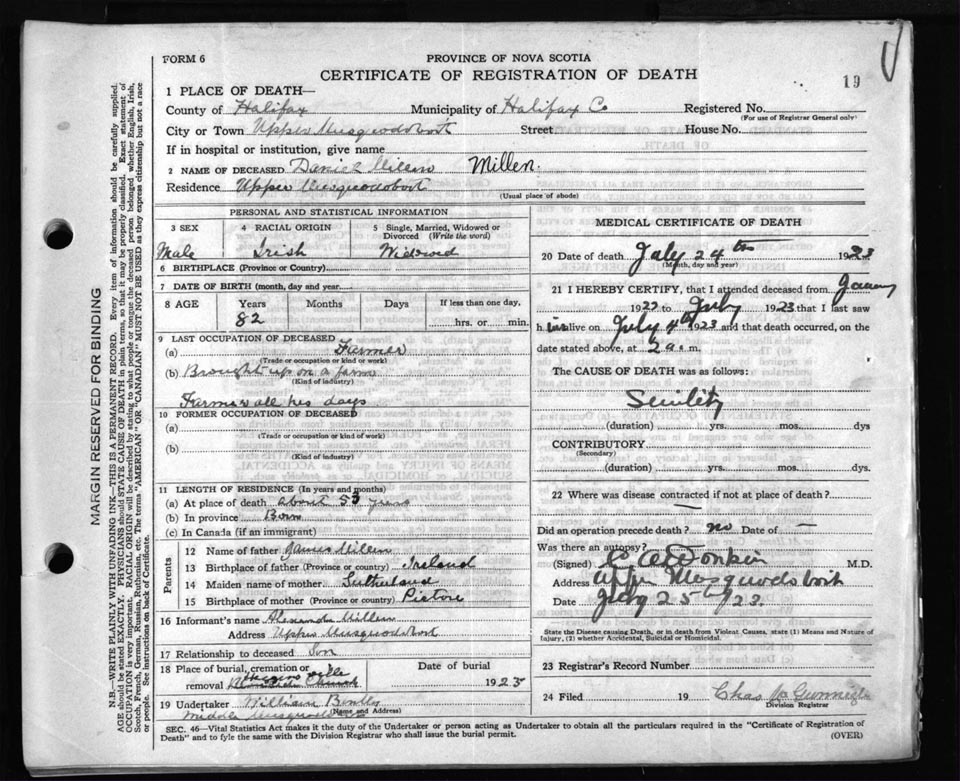 FORM 6
PROVINCE OF NOVA SCOTIA
CERTIFICATE OF REGISTRATION OF DEATH
19
1 PLACE OF DEATH—
County of Halifax Municipality of Halifax Co Registered No.
(For use of Registrar General only)
City or Town Upper Musquodoboit Street House No.
If in hospital or institution, give name
2 NAME OF DECEASED Daniel Millen Millen.
Residence Upper Musquodoboit
(Usual place of abode)
PERSONAL AND STATISTICAL INFORMATION
3 SEX 4 RACIAL ORIGIN 5 Single, Married, Widowed or Divorced (Write the word)
Male Irish Widowed
6 BIRTHPLACE (Province or Country)
7 DATE OF BIRTH (month, day and year)
8 AGE Years Months Days If less than one day,
82 hrs. or min.
9 LAST OCCUPATION OF DECEASED
(a) Farmer
(Trade or occupation or kind of work)
(b) Brought up on a farm
(Kind of industry)
Farmer all his days
10 FORMER OCCUPATION OF DECEASED
(a)
(Trade or occupation or kind of work)
(b)
(Kind of industry)
11 LENGTH OF RESIDENCE (In years and months)
(a) At place of death about 53 years
(b) In province Born
(c) In Canada (if an immigrant)
Parents
12 Name of father James Millen
13 Birthplace of father (Province or country) Ireland
14 Maiden name of mother Sutherland
15 Birthplace of mother (Province or country) Pictou
16 Informant's name Alexander Millen
Address Upper Musquodoboit
17 Relationship to deceased Son
18 Place of burial, cremation or removal Date of burial
1923
19 Undertaker William
(Name and address)
Middle Musquodoboit
MEDICAL CERTIFICATE OF DEATH
20 Date of death July 24th 1923
(Month, day and year)
21 I HEREBY CERTIFY, that I attended deceased from
1922 to July 1923 that I last saw
h im alive on July 4th 1923 and that death occurred, on
date stated above, at 2 a. m.
The CAUSE OF DEATH was as follows:
Senility
(duration) yrs. mos. dys
CONTRIBUTORY
(Secondary)
(duration) yrs. mos. dys.
22 Where was disease contracted if not at place of death?
Did an operation precede death? no Date of —
Was there an autopsy?
(Signed) M.D.
Address Upper Musquodoboit
Date July 25th 23.
State the Disease causing Death, or in death from Violent Causes, state (1) Means and Nature of
Injury, (2) whether Accidental, Suicidal or Homicidal.
23 Registrar's Record Number
24 Filed 19 Chas
Division Registrar
SEC. 46—Vital Statistics Act makes it the duty of the Undertaker or person acting as Undertaker to obtain all the particulars required in the "Certificate of Registration of
Death" and to fyle the same with the Division Registrar who shall issue the burial permit. (OVER)
MARGIN RESERVED FOR BINDING
N.B.—WRITE PLAINLY WITH UNFADING INK—THIS IS A PERMANENT RECORD. Every item of information should be carefully supplied.
AGE should be stated EXACTLY. PHYSICIANS should STATE CAUSE OF DEATH in plain terms, so that it may be properly classified. Exact statement of
OCCUPATION is very important. RACIAL ORIGIN will be described by stating to what people or tongue the deceased person belonged whether English, Irish,
Scotch, French, German, Russian, Ruthenian, etc. The terms "AMERICAN" OR "CANADIAN" MUST NOT BE USED as they express citizenship but not a race
or people. See instructions on back of Certificate.